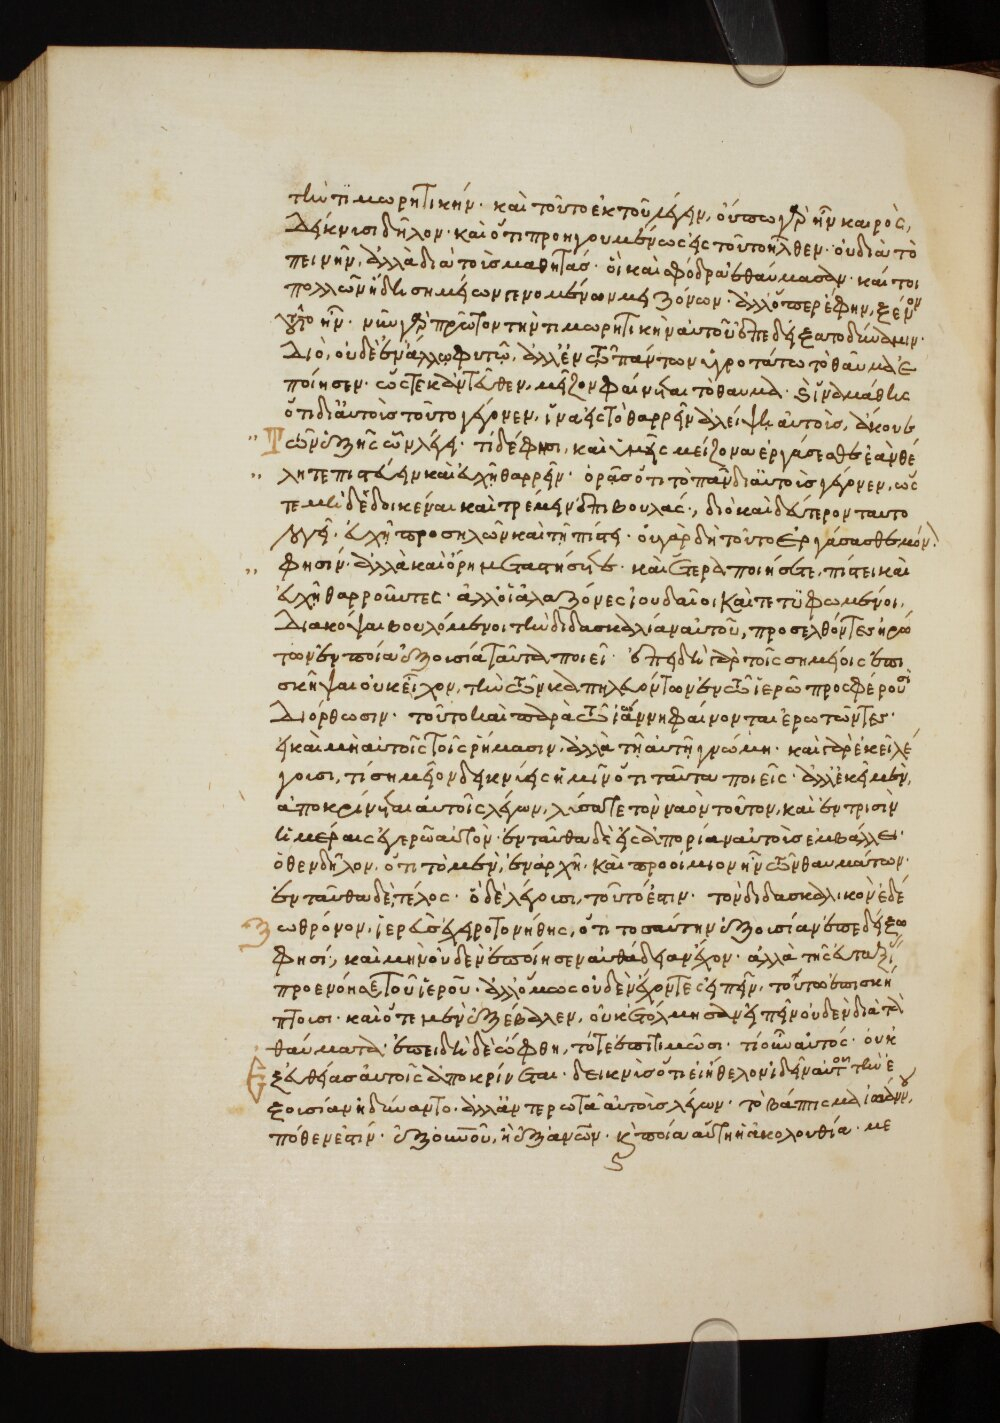 τὴν τιμωρητικήν· καὶ τοῦτο ἐκ τοῦ λέγειν, οὔπω γὰρ ἦν καιρὸς,
δείκνυσι δῆλον· καὶ ὅτι προηγουμένως εἰς τοῦτο ἦλθεν· οὐ διὰ τὸ
πεινῆν, ἀλλὰ διὰ τοὺς μαθητάς· οἳ καὶ σφόδρα ἐθαύμασαν· καίτοι
πολλῶν ἤδη σημείων γενομένων μειζόνων· ἀλλ' ὅπερ ἔφην, ξένον
τοῦτο ἦν· νῦν γὰρ πρῶτον τὴν τιμωρητικὴν αὐτοῦ ἐπεδείξατο δύναμιν·
διὸ, οὐδὲ ἐν ἄλλῳ φυτῷ, ἀλλ' ἐν τῷ πάντων ὑγροτάτῳ τὸ θαῦμα ἐ
ποίησεν· ὥστε κἀντεῦθεν, μεῖζον φαίνεσθαι τὸ θαῦμα· καὶ ἵνα μάθῃς
ὅτι δι' αὐτοὺς τοῦτο γέγονεν, ἵνα εἰς τὸ θαρρεῖν ἀλείψῃ αὐτοὺς, ἄκουε
τῶν ἑξῆς ὧν λέγει· τί δέ φησι, καὶ ὑμεῖς μείζονα ἐργάσεσθε ἐὰν θέ
λητε πιστεύειν καὶ εὐχῇ θαρρεῖν· ὁρᾷς ὅτι τὸ πᾶν δι' αὐτοὺς γέγονεν, ὥς
τε μὴ δεδοικέναι καὶ τρέμειν ἐπιβουλάς· διὸ καὶ δεύτερον ταυτο
λέγει· εὐχῇ προσηλῶν καὶ τῇ πίστει· οὐ γὰρ δὴ τοῦτο ἐργάσασθε μόν.
φησίν· ἀλλὰ καὶ ὄρη μεταστήσετε· καὶ ἕτερα ποιήσετε, πίστει καὶ
εὐχῇ θαρροῦντες· ἀλλ' οἱ ἀλαζόνες ἰουδαῖοι καὶ τετυφωμένοι,
διακόψαι βουλόμενοι τὴν διδασκαλίαν αὐτοῦ, προσελθόντες ἠρώ
των ἐν ποίᾳ ἐξουσίᾳ ταῦτα ποιεῖ· ἐπειδὴ γὰρ τοῖς σημείοις ἐπι
σκῆψαι οὐκ εἶχον, τὴν τῶν καπηλευόντων ἐν τῷ ἱερῷ προσφέρουσι
διόρθωσιν· τοῦτο καὶ παρὰ τῷ ἰωάννῃ φαίνονται ἐρωτῶντες·
εἰ καὶ μὴ αὐτοῖς τοῖς ῥήμασιν, ἀλλὰ τῇ αὐτῇ γνώμῃ· καὶ γὰρ ἐκεῖ λέ
γουσι, τί σημεῖον δεικνύεις ἡμῖν ὅτι ταῦτα ποιεῖς· ἀλλ' ἐκεῖ μὲν,
ἀποκρίνεται αὐτοῖς λέγων, λύσατε τὸν ναὸν τοῦτον, καὶ ἐν τρισὶν
ἡμέραις ἐγερῶ αὐτὸν· ἐνταῦθα δὲ εἰς ἀπορίαν αὐτοὺς ἐμβάλλει·
ὅθεν δῆλον, ὅτι τὸ μὲν, ἐν ἀρχῇ, καὶ προοίμιον ἦν τῶν θαυμάτων·
ἐνταῦθα δὲ, τέλος· ὃ δὲ λέγουσι, τοῦτό ἐστιν· τὸν διδασκαλικὸν ἐδέ
ξω θρόνον, ἱερεὺς ἐχειροτονήθης, ὅτι τοσαύτην ἐξουσίαν ἐπεδείξω
φησί, καὶ μὴν οὐδὲν ἐποίησεν αὐθάδειαν ἔχον· ἀλλὰ τῆς εὐταξί
προενόησε τοῦ ἱεροῦ· ἀλλ' ὅμως οὐδὲν ἔχοντες εἰπεῖν, τούτῳ ἐπισκή
πτουσι· καὶ ὅτε μὲν ἐξέβαλεν, οὐκ ἐτόλμησαν εἰπεῖν οὐδὲν διὰ τὰ
θαύματα· ἐπειδὴ δὲ ὤφθη, τότε ἐπιτιμῶσι· τί οὖν αὐτός· οὐκ
ἐξ εὐθείας αὐτοῖς ἀποκρίνεται· δεικνὺς ὅτι εἰ ἤθελον ἰδεῖν αὐτοῦ τὴν ἐ
ξουσίαν ἠδύναντο· ἀλλ' ἀντερωτᾷ αὐτοὺς λέγων· τὸ βάπτισμα ἰωάννου,
πόθεν ἐστίν· ἐξ οὐνοῦ, ἢ ἐξ ἀνων· κ ποία αὕτη ἡ ἀκολουθία· με